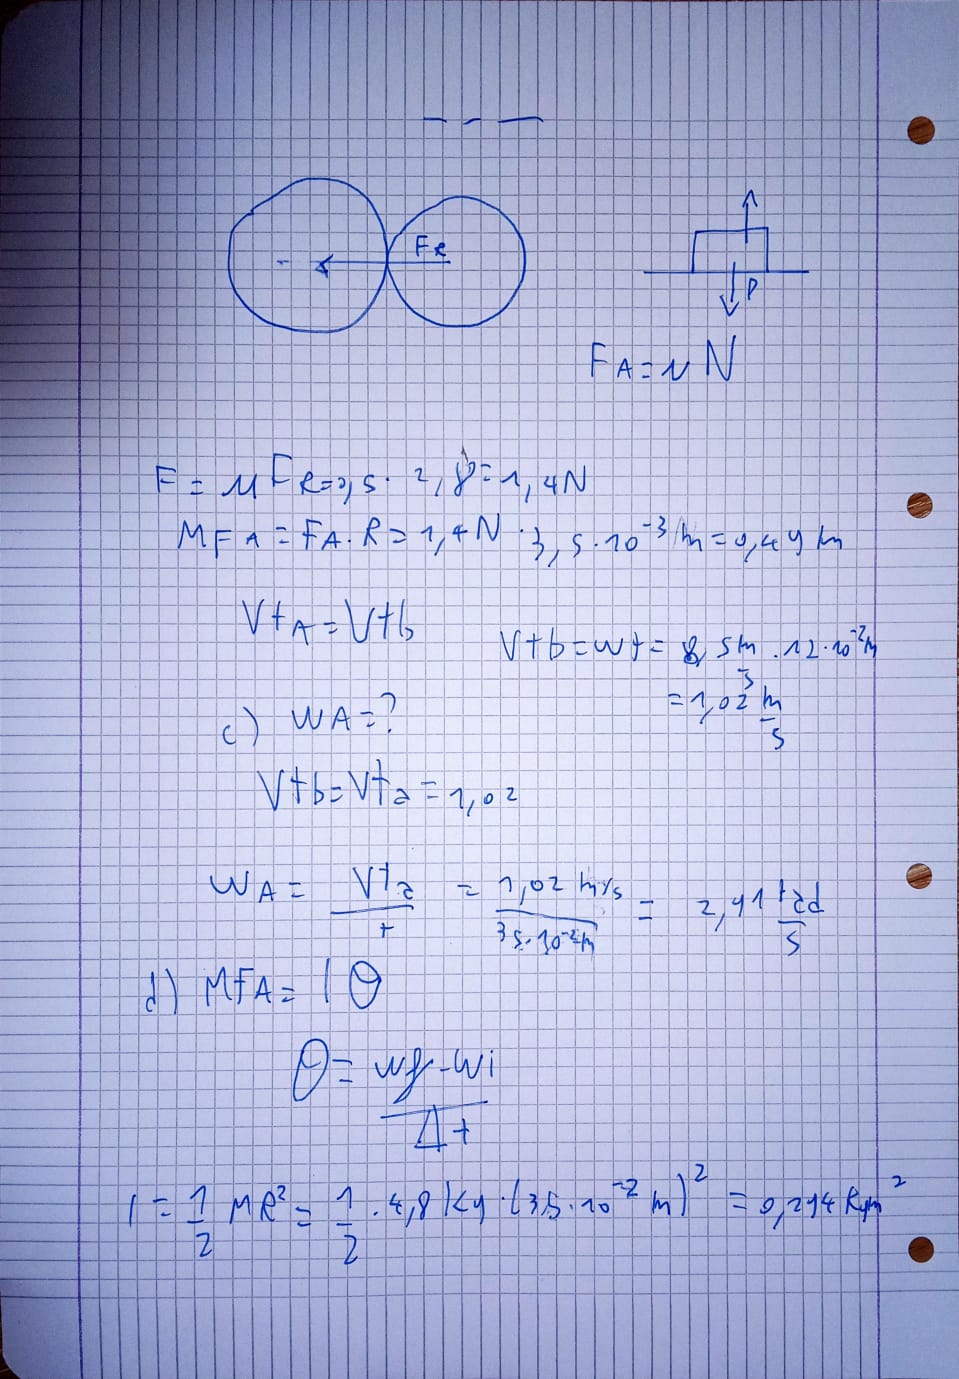 FR
P
FA = μ N
F = μ FR = 0,5 · 2,8 = 1,4N
MFA = FA · R = 1,4N · 3,5 · 10⁻³ m = 0,49 Nm
VtA = Vtb
Vtb = wr = 8,5 m/s · 12 · 10⁻² m
= 1,02 m/s
c) WA = ?
Vtb = Vta = 1,02
WA = Vta/r = 1,02 m/s / 35 · 10⁻² m = 2,91 rad/s
d) MFA = I θ
θ = wf - wi / Δt
I = 1/2 MR² = 1/2 · 4,8 kg · (35 · 10⁻² m)² = 0,294 kgm²